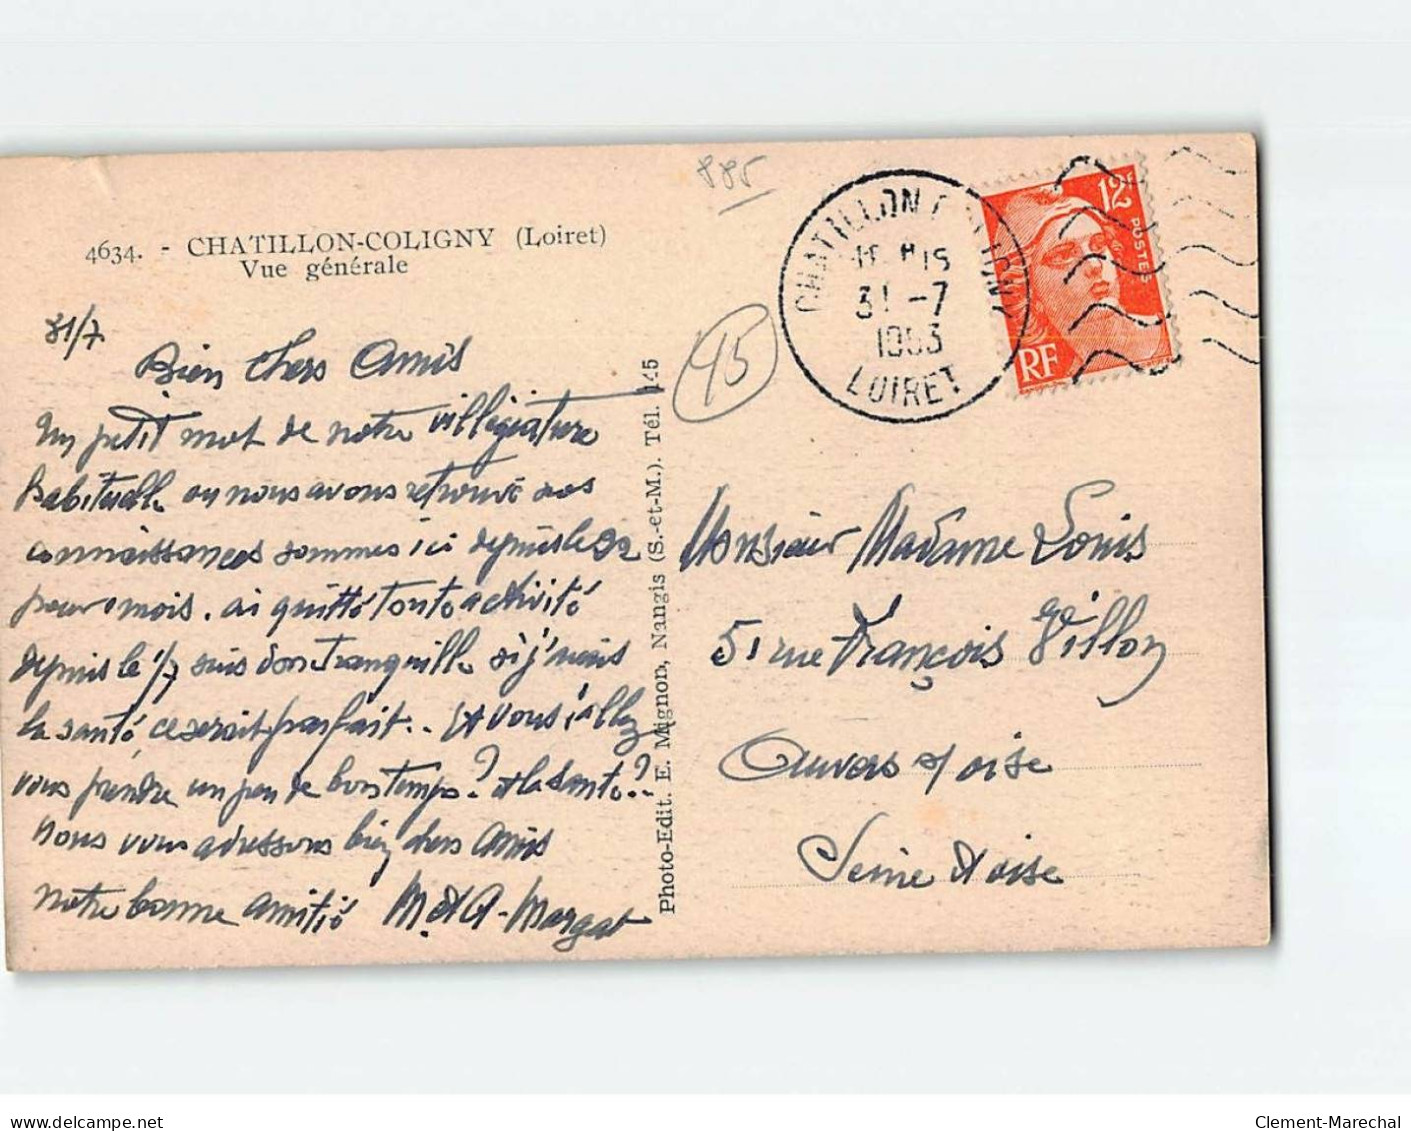 885
4634. - CHATILLON-COLIGNY (Loiret)
Vue générale
31/7
Bien chers Amis
Un petit mot de notre villégiature
habituelle ou nous avons retrouvé nos
connaissances sommes ici depuis le
pour mois. ai quitté toute activité
depuis le 1/7 suis donc tranquille si j'avais
la santé ce serait parfait.. Et vous allez
vous prendre un peu de bon temps? et la santé?
Nous vous adressons bien chers Amis
notre bonne amitié M. et A. Margat
Photo-Edit. E. Mignon, Nangis (S.-et-M.). Tél. 145
45
CHATILLON COLIGNY
31 -7
1953
LOIRET
12F
POSTES
RF
Monsieur Madame Louis
51 rue François Villon
Auvers s/ oise
Seine et oise
www.delcampe.net
Clement-Marechal